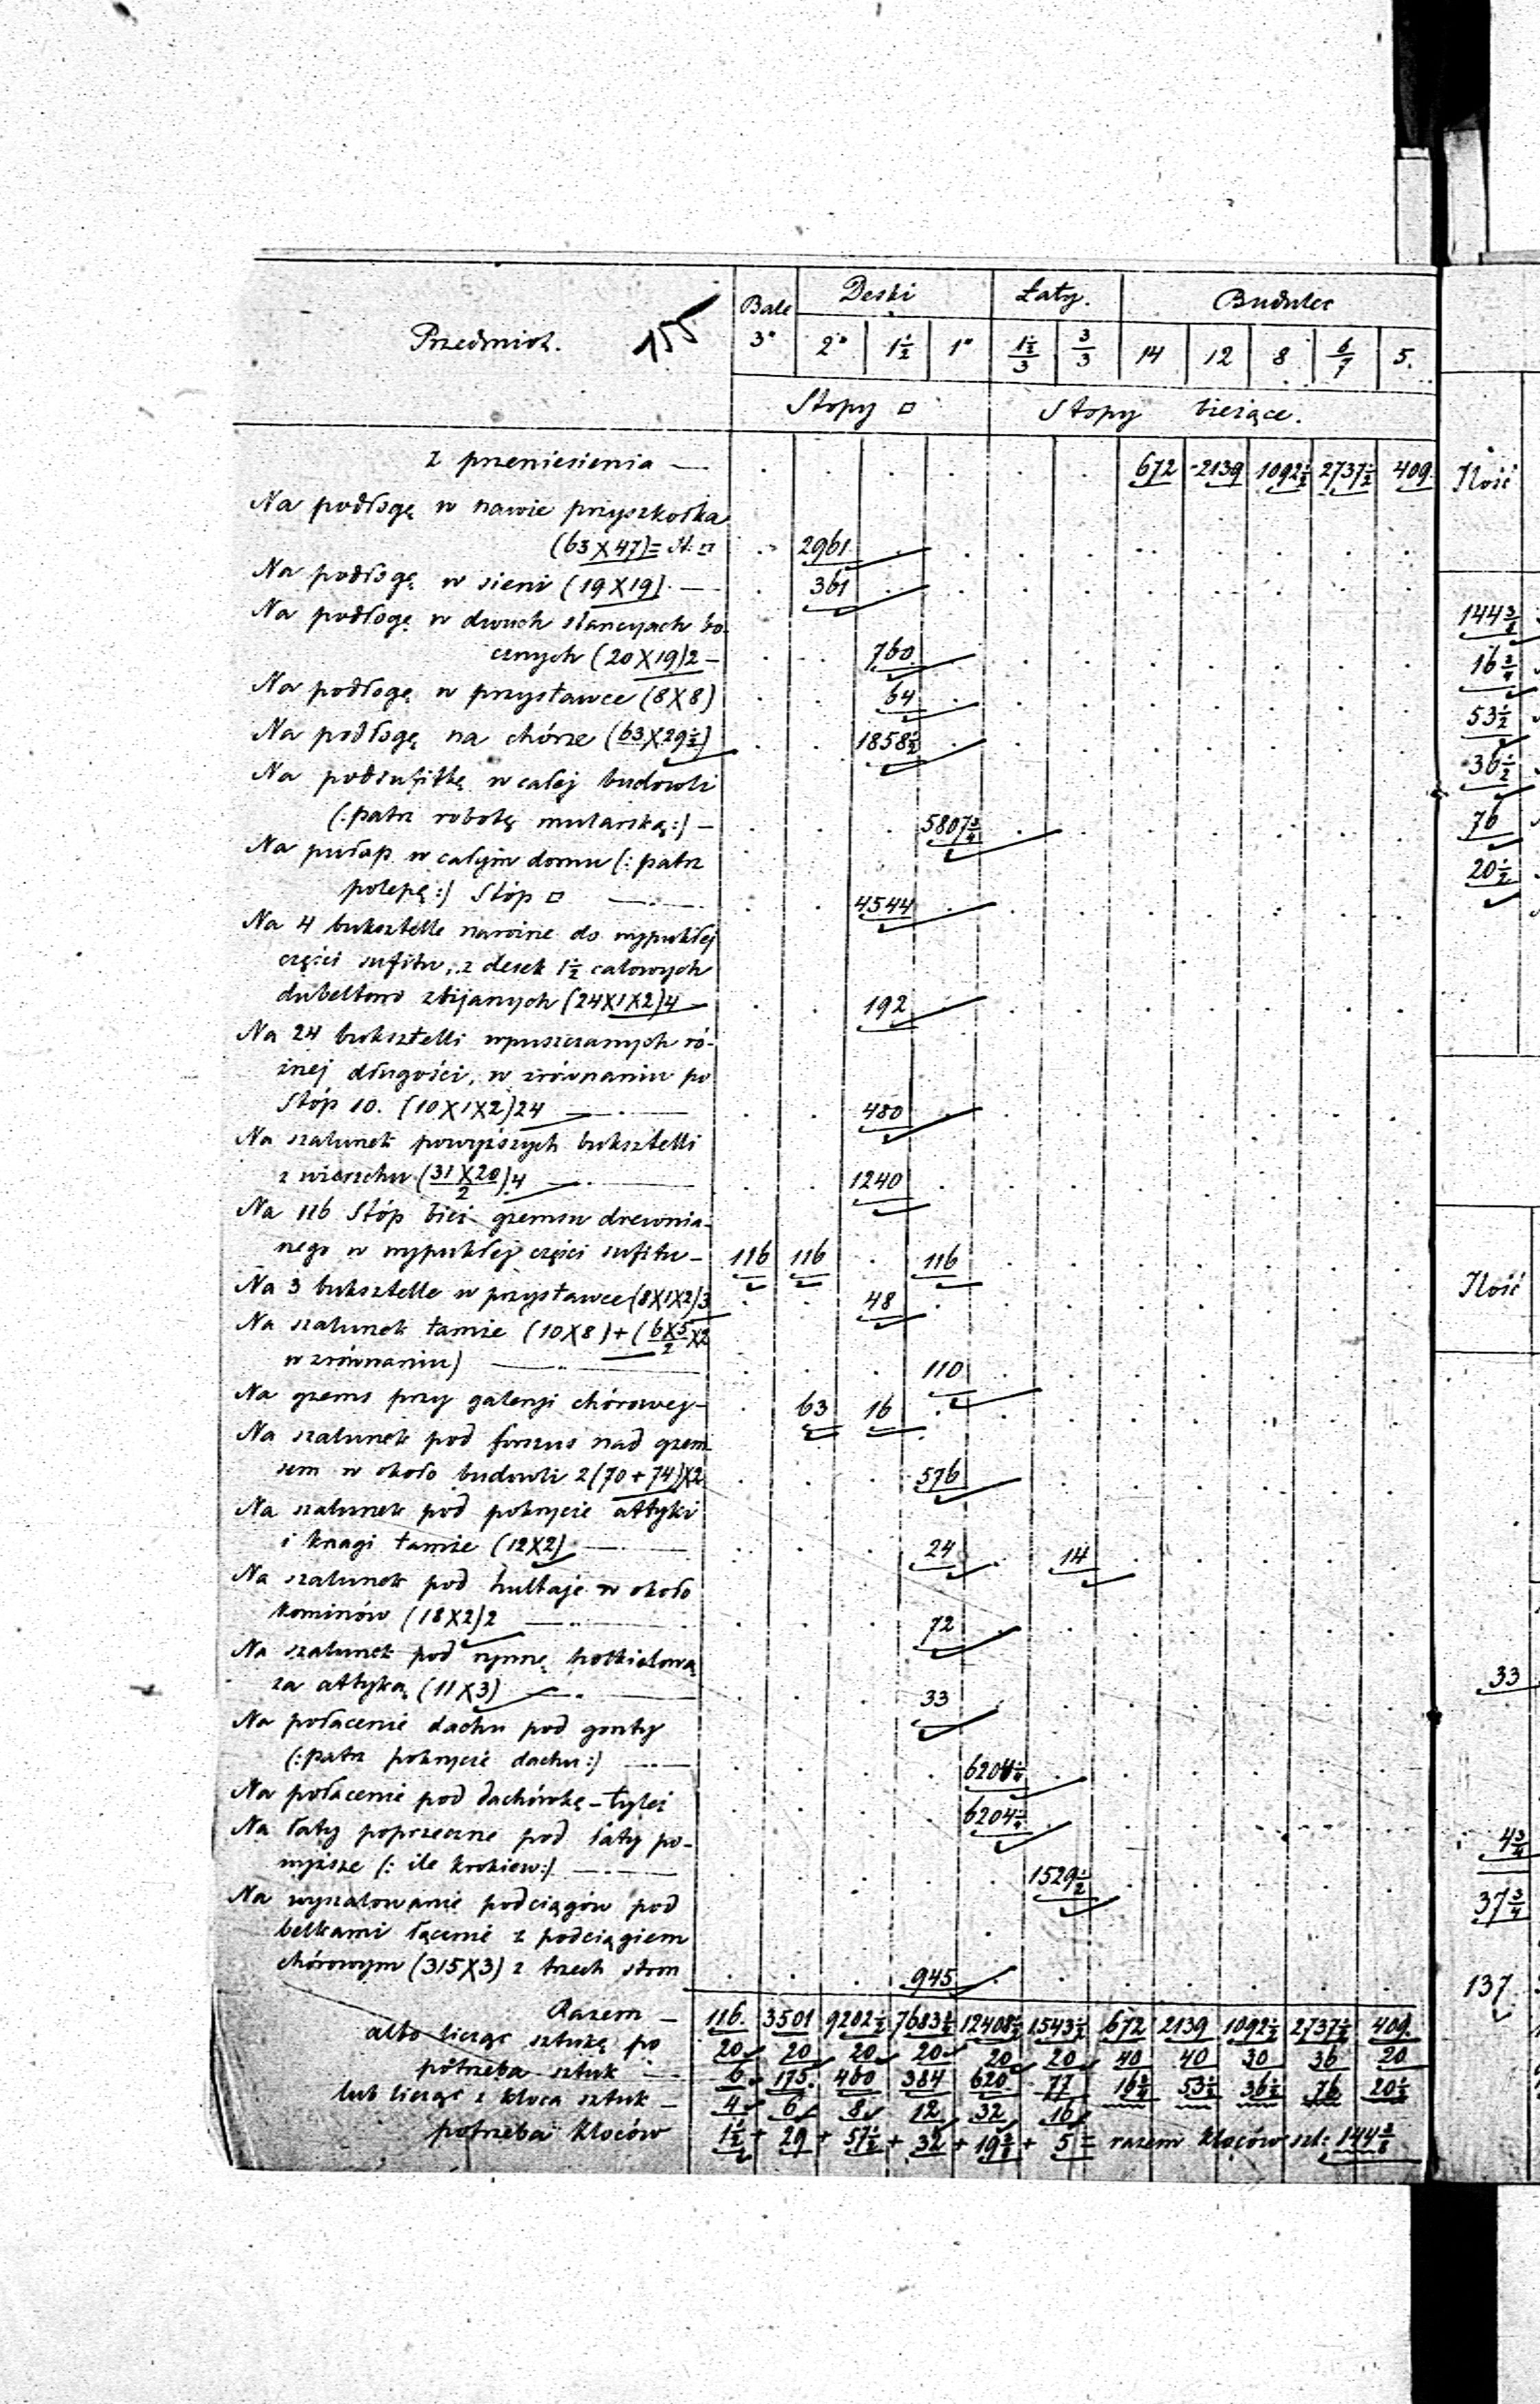 Przedmiot. 155 Bale Deski Łaty. Budulec
3" 2" 1½ 1" 1½/3 3/3 14 12 8 6/7 5.
Stopy □ Stopy bieżące.
z przeniesienia — 672 2139 1092½ 2737½ 409.
Na podłogę w nawie przyszkołka
(63X47)= st. □ 2961
Na podłogę w sieni (19X19) — 361
Na podłogę w dwuch stancyach bo-
cznych (20X19)2 — 760
Na podłogę w przystawce (8X8) 64
Na podłogę na chórze (63X29½) 1858½
Na podsufitkę w całej budowli
(:patrz robotę mularską:) — 5807¾
Na pułap w całym domu (:patrz
polepę:) Stóp □ — 4544
Na 4 buksztelle narożne do wypukłej
części sufitu, z desek 1½ calowych
dubeltowo zbijanych (24X1X2)4 — 192
Na 24 buksztelli wpuszczanych ró-
żnej długości, w zrównaniu po
Stóp 10. (10X1X2)24 — 480
Na szalunek powyższych buksztelli
z wierzchu (31X20/2)4 — 1240
Na 116 Stóp bież. gzemsu drewnia-
nego w wypukłej części sufitu — 116 116 116
Na 3 buksztelle w przystawce (8X1X2)3 48
Na szalunek tamże (10X8)+(6X5/2X2
w zrównaniu) — 110
Na gzems przy galeryi chórowej — 63 16
Na szalunek pod fuszus nad gzem-
sem w około budowli 2(70+74)X2 576
Na szalunek pod pokrycie attyki
i knagi tamże (12X2) — 24 14
Na szalunek pod hultaje w około
kominów (18X2)2 — 72
Na szalunek pod rynnę
za attyką (11X3) — 33
Na połacenie dachu pod gonty
(:patrz pokrycie dachu:) — 6204¼
Na połacenie pod dachówkę — tyleż 6204¼
Na łaty poprzeczne pod łaty po-
wyższe (: ile krokiew:) — 1529½
Na wyszalowanie podciągów pod
belkami łącznie z podciągiem
chórowym (315X3) z trzech stron 945
Razem — 116. 3501 9202½ 7683¾ 12408½ 1543½ 672 2139 1092½ 2737½ 409.
albo licząc sztukę po 20 20 20 20 20 20 40 40 30 36 20
potrzeba sztuk — 6 175. 460 384 620. 77 16¾ 53½ 36½ 76 20½
lub licząc z kloca sztuk — 4 6 8 12 32 16
potrzeba kloców 1½ + 29 + 57½ + 32 + 19⅜ + 5 = razem kloców szt: 144⅜
Ilość
144⅜
16¾
53½
36½
76
20½
Ilość
33
4¾
37¾
137